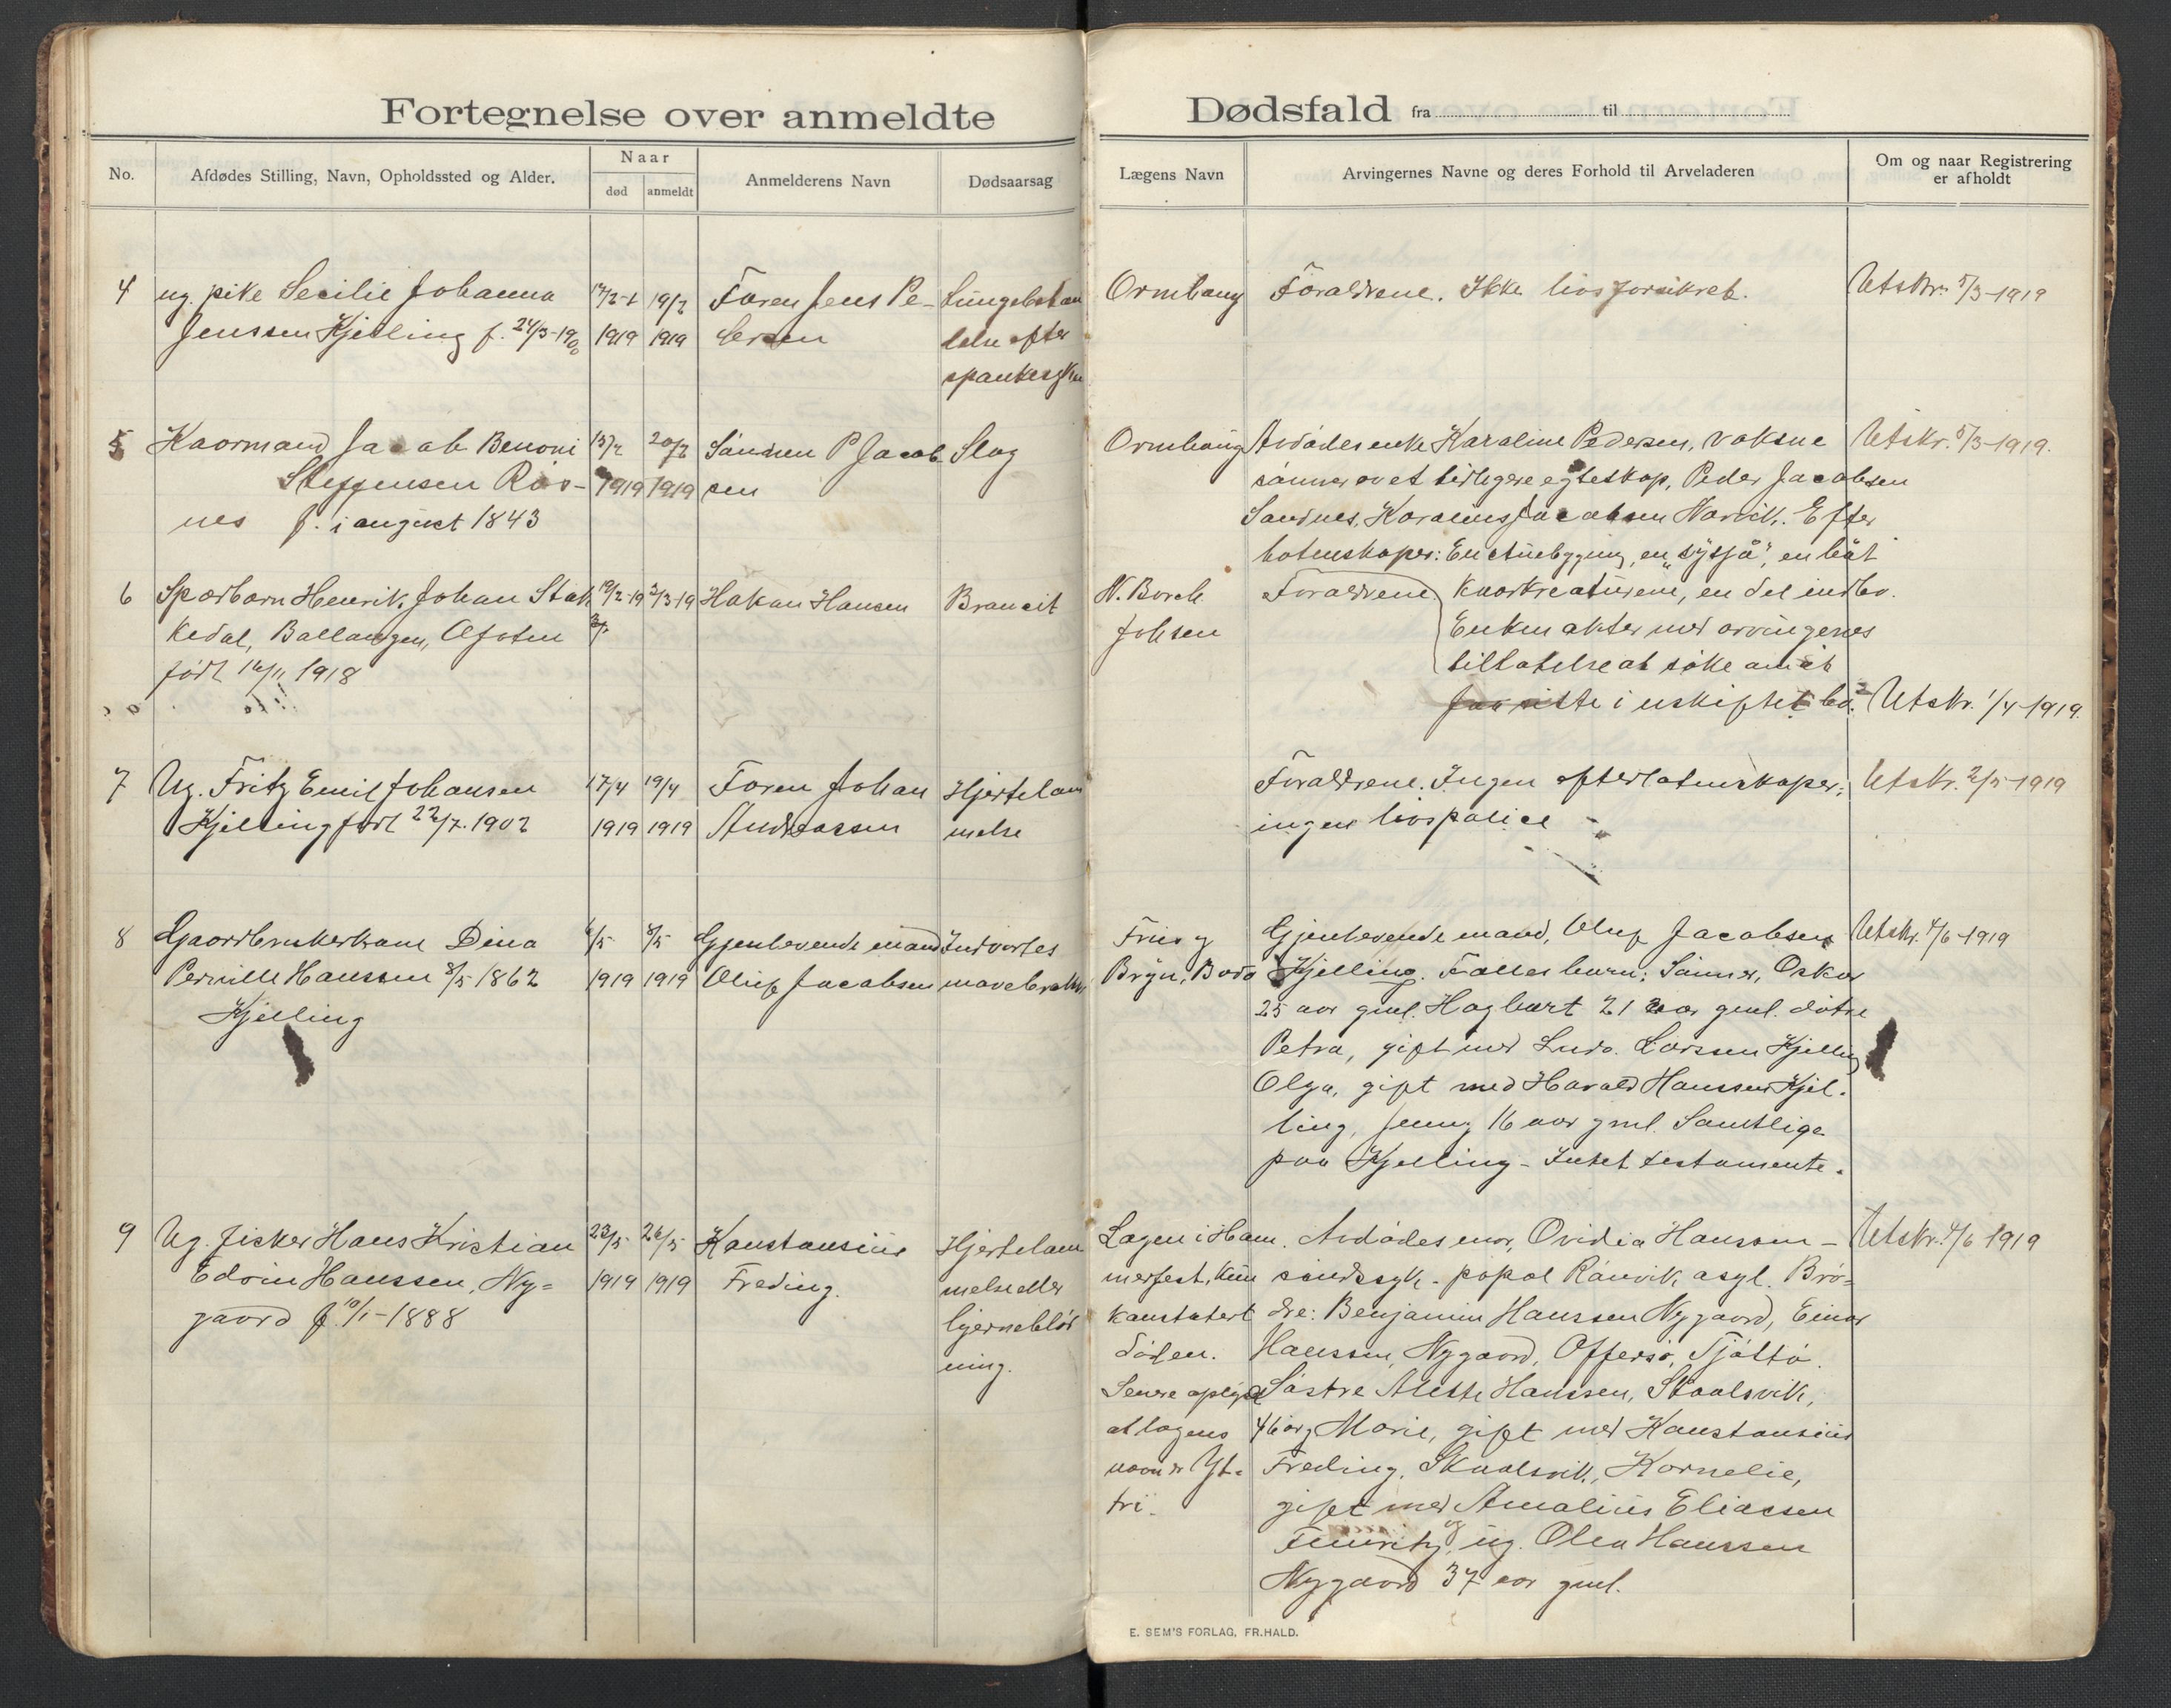 Fortegnelse over anmeldte
Dødsfald fra til
No.
Afdødes Stilling, Navn, Opholdssted og Alder.
Naar
død
anmeldt
Anmelderens Navn
Dødsaarsag
Lægens Navn
Arvingernes Navne og deres Forhold til Arveladeren
Om og naar Registrering
er afholdt
4 ug. pike Secilie Johanna
Jenssen Kjelling f. 24/3-1900
19/2
1919 1919
Faren Jens Pe-
dersen
Lungebetæn
delse efter
spanskesyken
Ormhaug
Forældrene. Ikke livsforsikret.
Utskr. 5/3-1919
5 Kaarmand Jacob Benoni
Steffensen Røs-
nes f. i august 1843
13/2 20/2
1919 1919
Sønnen P Jacob
sen
Slag
Ormhaug
Avdødes enke Karoline Pedersen, voksne
sønner av et tidligere egteskap, Peder Jacobsen
Sandnes, Karelius Jacobsen Narvik. Efter
latenskaper: En stuebygning, en "sysjå", en båt
Utskr. 5/3-1919.
6 Spædbarn Henrik Johan Stok
kedal, Ballangen, Ofoten
født 16/11 1918
19/2-19 3/3-19
Hakon Hansen
Broncit
N. Borch
Johsen
Forældrene
kaarkreaturene, en del indbo.
Enken akter med arvingenes
tillatelse at søke om at
faa sitte i uskiftet bo.
Utskr. 1/4-1919.
7 Ug. Fritz Emil Johansen
Kjelling født 22/7.1902
17/4 19/4
1919 1919
Faren Johan
Andreassen
Hjertelam
melse
Forældrene. Ingen efterlatenskaper;
ingen livspolice
Utskr. 2/5-1919
8 Gaardbrukerkone Dina
Pernille Hanssen 8/5 1862
Kjelling
6/5 8/5
1919 1919
Gjenlevende mand
Oluf Jacobsen
Indvortes
mavebrok
Friis og
Bryn, Bodø
Gjenlevende mand, Oluf Jacobsen
Kjelling. Fælles barn: Sønner, Oskar
25 aar gml. Hagbart 21 aar gml. døtre
Petra, gift med Ludv. Larssen Kjelling
Olga, gift med Harald Hanssen Kjel-
ling, Jenny 16 aar gml. Samtlige
paa Kjelling - Intet testamente.
Utskr. 4/6-1919
9 Ug. fisker Hans Kristian
Edvin Hanssen, Ny=
gaard f. 10/1-1888
23/5 26/5
1919 1919
Konstansius
Freding.
Hjertelam
melse eller
hjerneblød
ning.
Lægen i Ham
merfest, kun
konstatert
døden.
Senere oplyst
at lægens
navn er Yt-
tri.
Avdødes mor, Ovidia Hanssen -
sindssyk. - popal Rønvik asyl. Brø-
dre: Benjamin Hanssen Nygaard, Einar
Hanssen, Nygaard, Offersø, Tjøttø.
Søstre Alette Hanssen, Skaalsvik,
46 år, Marie, gift med Konstansius
Freding, Skaalsvik, Kornelie,
gift med Amalius Eliassen
og ug. Olea Hanssen
Nygaard 37 aar gml.
Utskr. 4/6 1919
E. SEM'S FORLAG, FR.HALD.